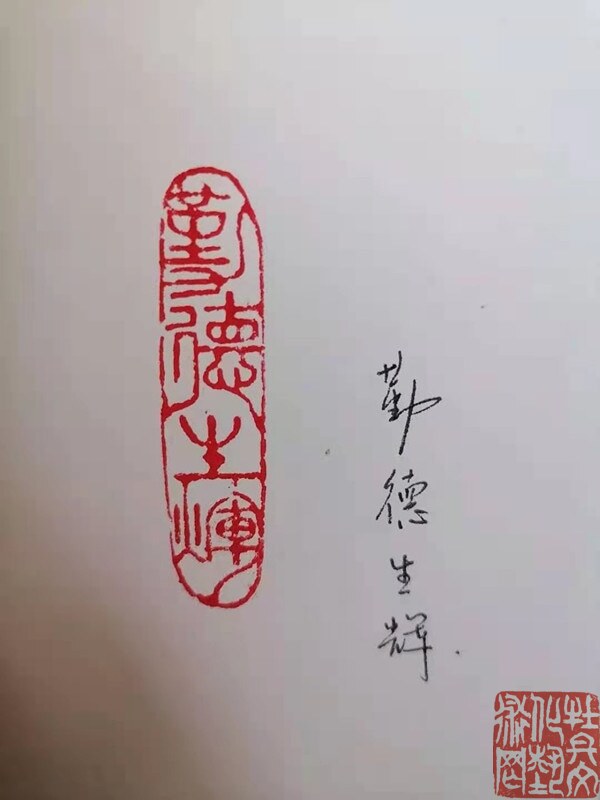 勤德生煇
勤德生辉